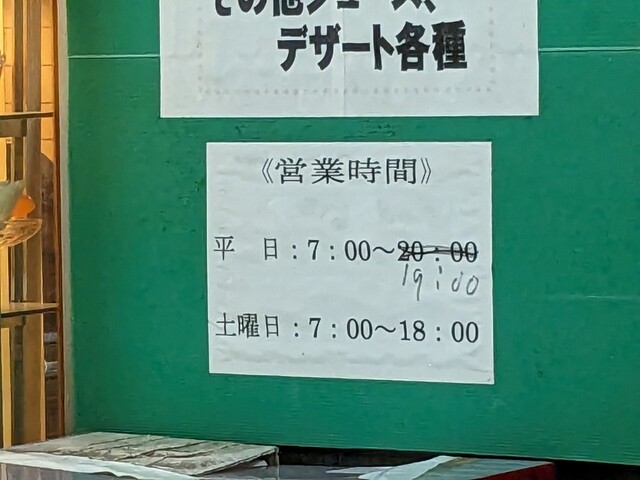 その他ジュース、
デザート各種
《営業時間》
平 日：7：00〜20：00
19:00
土曜日：7：00〜18：00